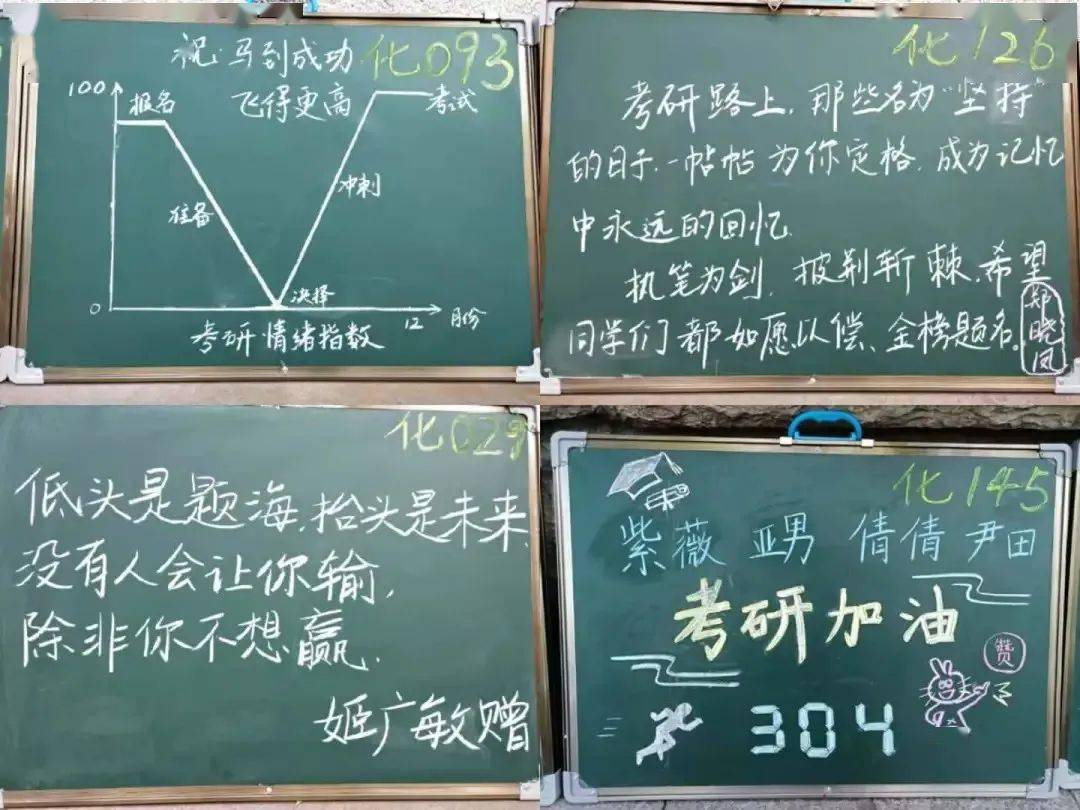 祝:马到成功 化093
飞得更高
100
报名
考试
冲刺
准备
决择
0
12
月份
考研情绪指数
化126
考研路上,那些名为“坚持”
的日子,一帖帖为你定格,成为记忆
中永远的回忆.
执笔为剑,披荆斩棘,希望
同学们都如愿以偿、金榜题名.
郑晓凤
化029
低头是题海,抬头是未来,
没有人会让你输,
除非你不想赢.
姬广敏赠
化145
紫薇 亚男 倩倩 尹田
考研加油
赞
304